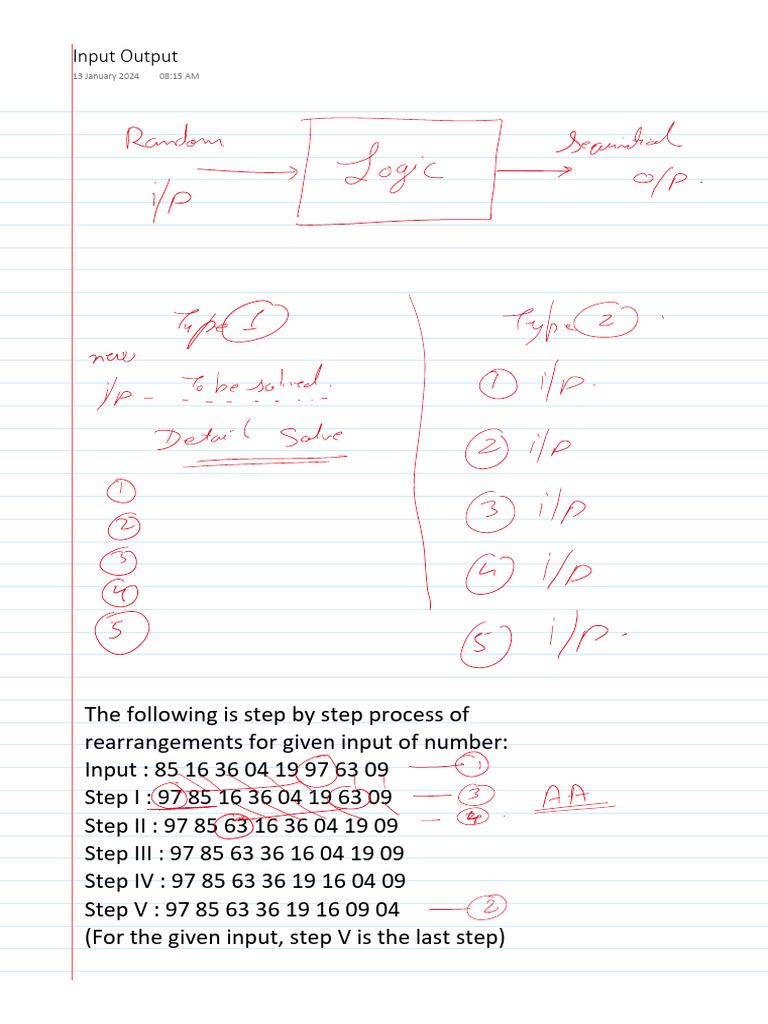 Input Output
13 January 2024 08:15 AM
Random
i/p
Logic
Sequintial
o/p.
Type 1
new
i/p - To be solved.
Detail Solve
1
2
3
4
5
Type 2
1 i/p.
2 i/p
3 i/p
4 i/p
5 i/p.
The following is step by step process of
rearrangements for given input of number:
Input : 85 16 36 04 19 97 63 09 1
Step I : 97 85 16 36 04 19 63 09 3
AA
Step II : 97 85 63 16 36 04 19 09 4
Step III : 97 85 63 36 16 04 19 09
Step IV : 97 85 63 36 19 16 04 09
Step V : 97 85 63 36 19 16 09 04 2
(For the given input, step V is the last step)